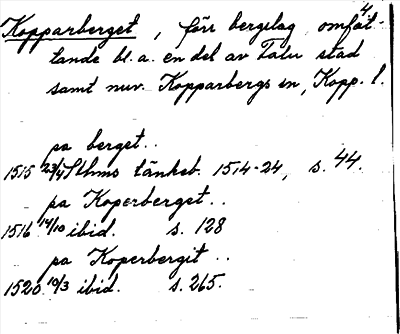 4
Kopparberget, förr bergslag omfat-
tande bl. a. en del av Falu stad
samt nuv. Kopparbergs sn, Kopp. l.
pa berget..
1515 23/4 Sthms tänkeb. 1514-24, s. 44.
pa Koperberget..
1516 14/10 ibid. s. 128
pa Koperbergit..
1520 10/3 ibid. s. 265.